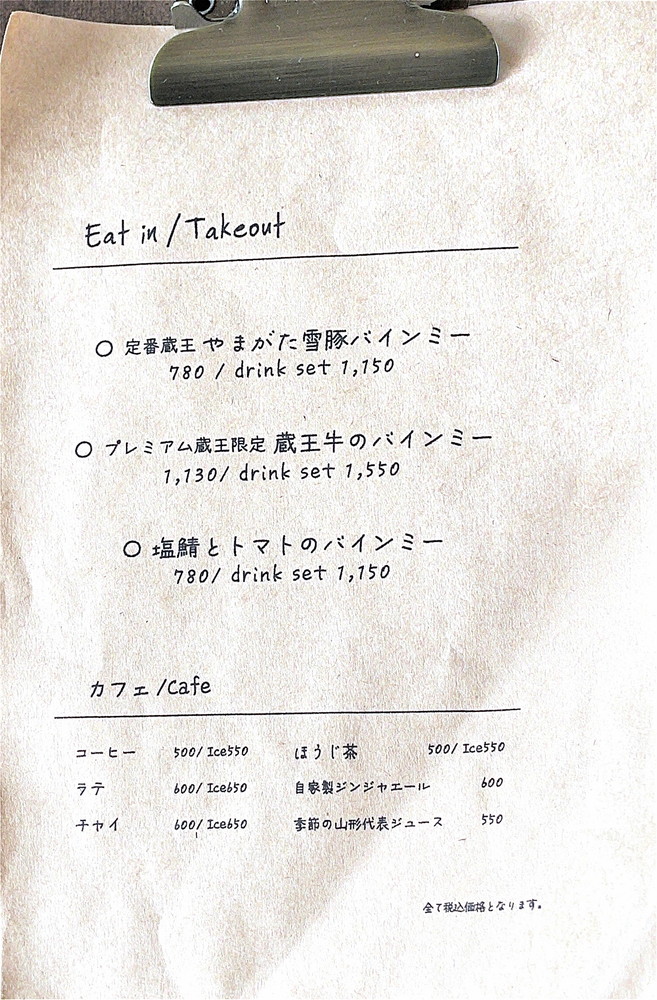 Eat in / Takeout
○ 定番蔵王 やまがた雪豚バインミー
780 / drink set 1,150
○ プレミアム蔵王限定 蔵王牛のバインミー
1,130/ drink set 1,550
○ 塩鯖とトマトのバインミー
780/ drink set 1,150
カフェ/Cafe
コーヒー 500/ Ice550 ほうじ茶 500/ Ice550
ラテ 600/ Ice650 自家製ジンジャエール 600
チャイ 600/ Ice650 季節の山形代表ジュース 550
全て税込価格となります。